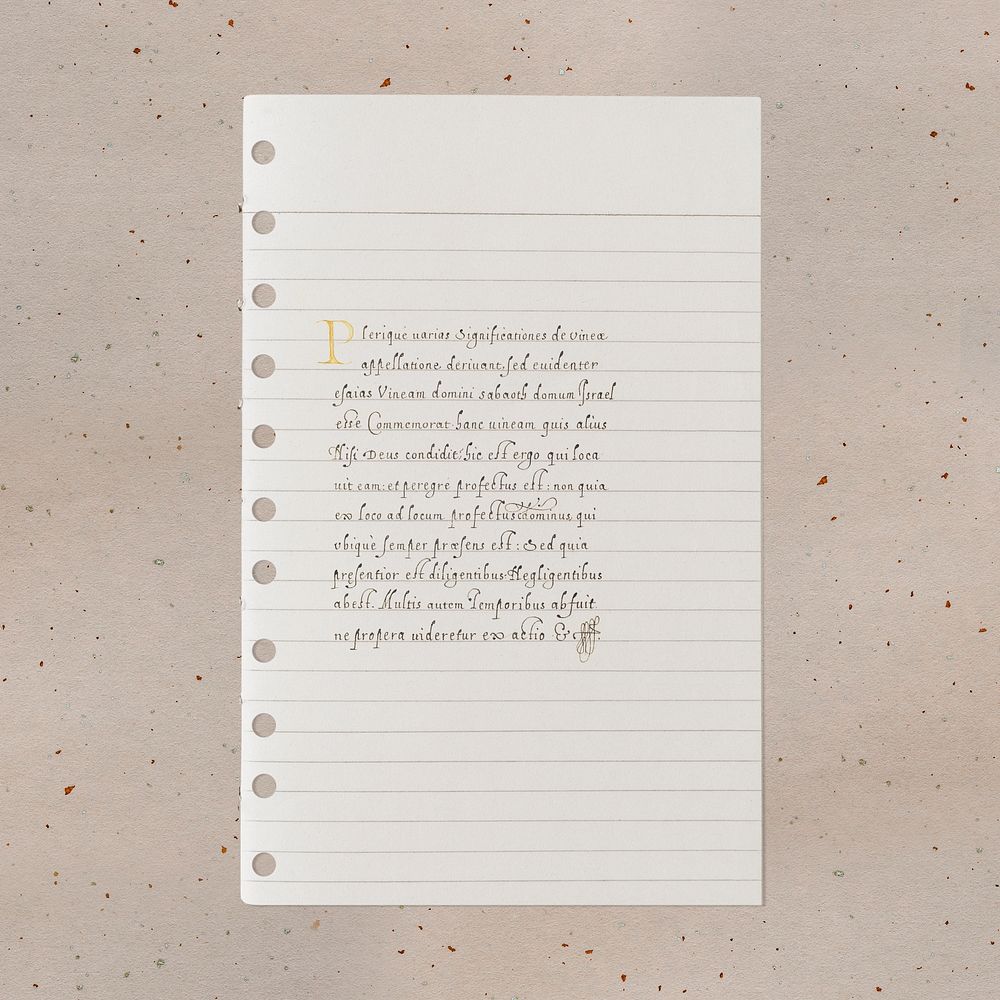 Plerique uarias Significationes de vineæ
appellatione deriuant, sed euidenter
esaias Vineam domini sabaoth domum Israel
esse Commemorat. hanc uineam quis alius
Nisi Deus condidit: hic est ergo qui loca
uit eam: et peregre profectus est: non quia
ex loco ad locum profectus dominus, qui
vbique semper præsens est: Sed quia
presentior est diligentibus. Negligentibus
abest. Multis autem Temporibus abfuit
ne propera uideretur ex actio &